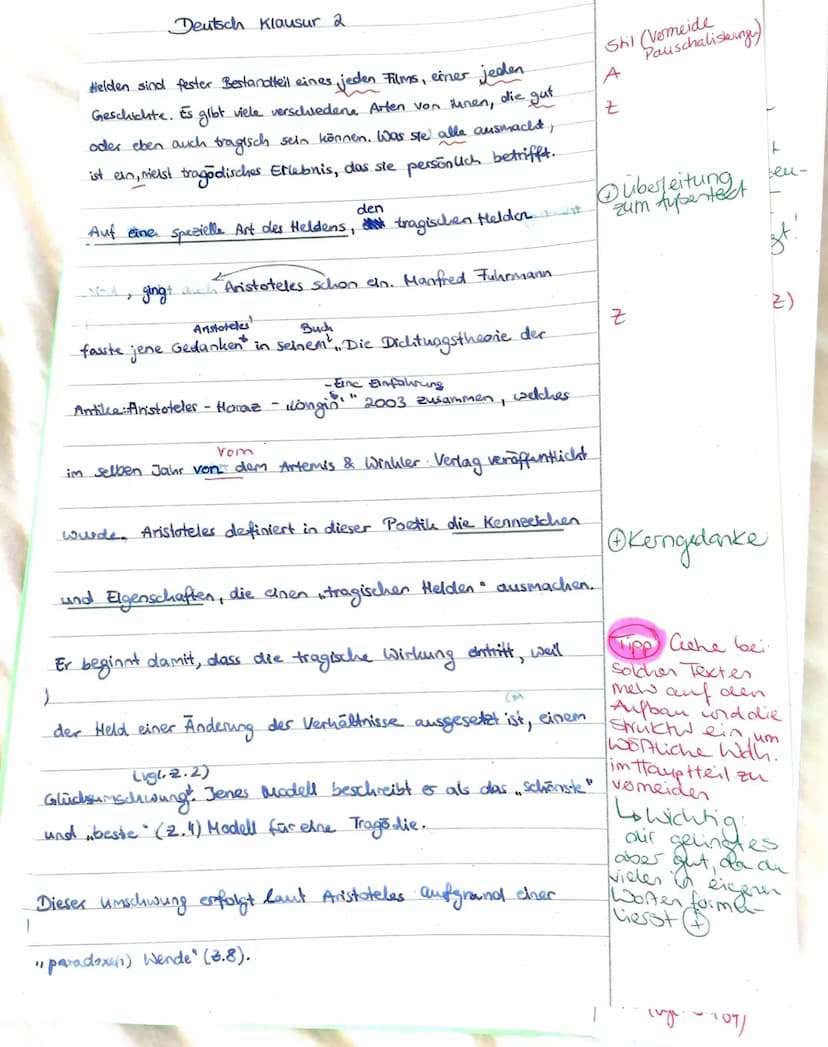 Deutsch Klausur 2
Helden sind fester Bestandteil eines jeden Films, einer jeden
Geschichte. Es gibt viele verschiedene Arten von ihnen, die gut
oder eben auch tragisch sein können. Was sie alle ausmacht,
ist ein, meist tragödisches Erlebnis, das sie persönlich betrifft.
Auf eine spezielle Art des Heldens, den tragischen Helden
, gingt Aristoteles schon ein. Manfred Fuhrmann
fasste jene Gedanken Aristoteles' in seinem Buch „Die Dichtungstheorie der
Antike: Aristoteles - Horaz - „Longin‟ - Eine Einführung" 2003 zusammen, welches
im selben Jahr von dem Artemis & Winkler Verlag veröffentlicht
vom
wurde. Aristoteles definiert in dieser Poetik die Kennzeichen
und Eigenschaften, die einen „tragischen Helden" ausmachen.
Er beginnt damit, dass die tragische Wirkung eintritt, weil
der Held einer Änderung der Verhältnisse ausgesetzt ist, einem
Glücksumschwung (vgl. Z. 2). Jenes Modell beschreibt er als das „schönste"
und „beste" (Z. 4) Modell für eine Tragödie.
Dieser Umschwung erfolgt laut Aristoteles aufgrund einer
„paradoxe(n) Wende" (Z. 8).
Stil (Vermeide
Pauschalisierungen)
A
Z
⊕ Überleitung
zum Außentext
Z
⊕ Kerngedanke
Tipp Gehe bei
solchen Texten
mehr auf den
Aufbau und die
Struktur ein, um
wörtliche Wdh.
im Hauptteil zu
vermeiden
↳ Wichtig:
dir gelingt es
aber gut, da du
vieles in eigenen
Worten formu-
lierst ⊕